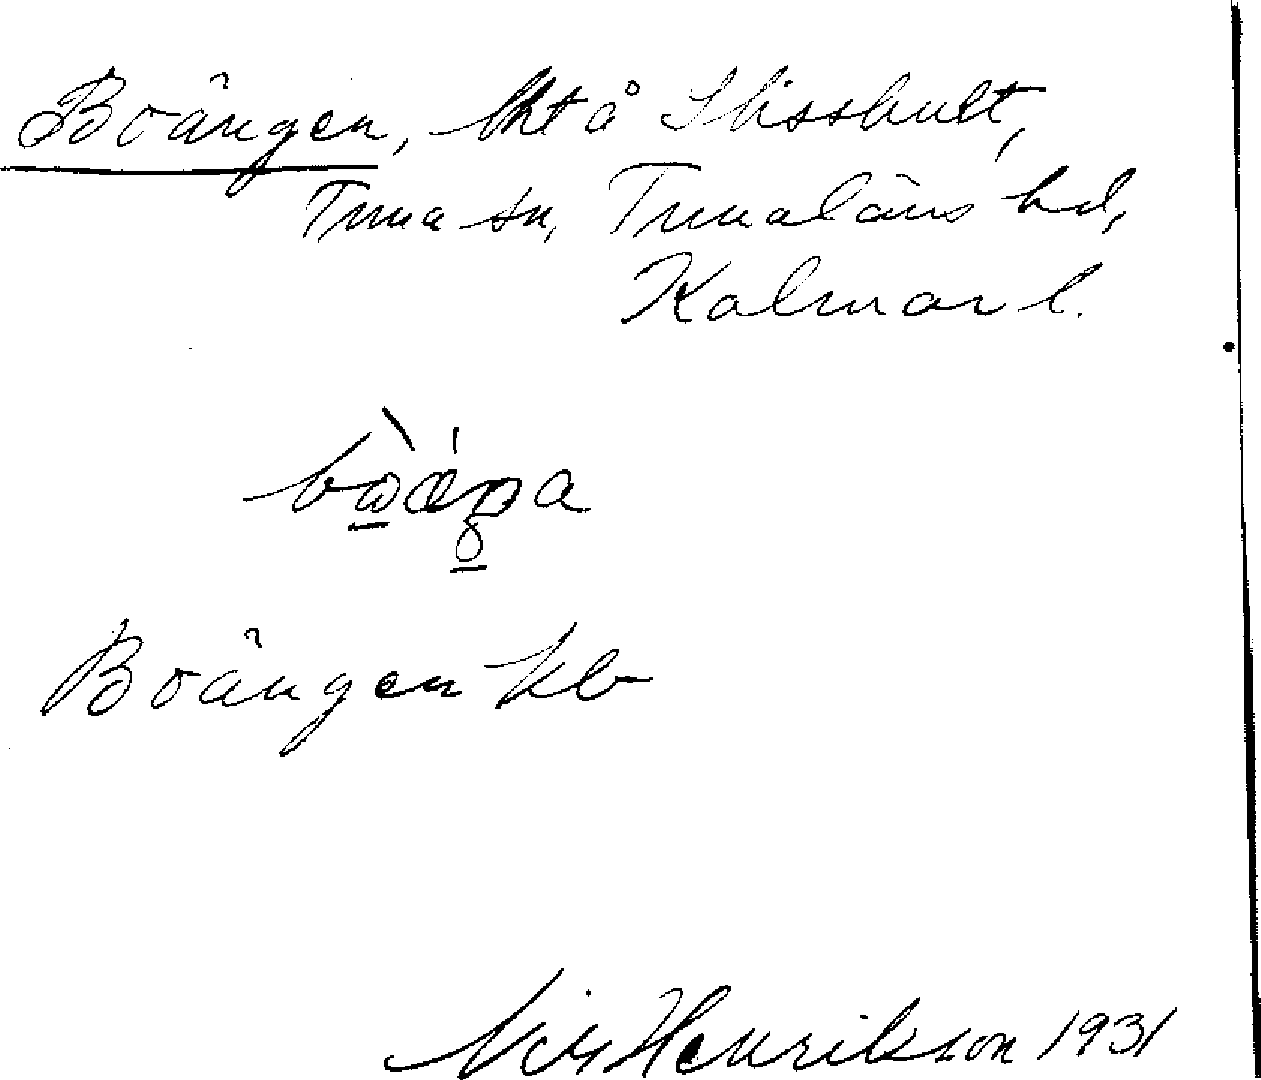 Boängen, lht å Skisshult,
Tuna sn, Tunaläns hd,
Kalmar l.
Boängen kb
Nils Henrikson 1931